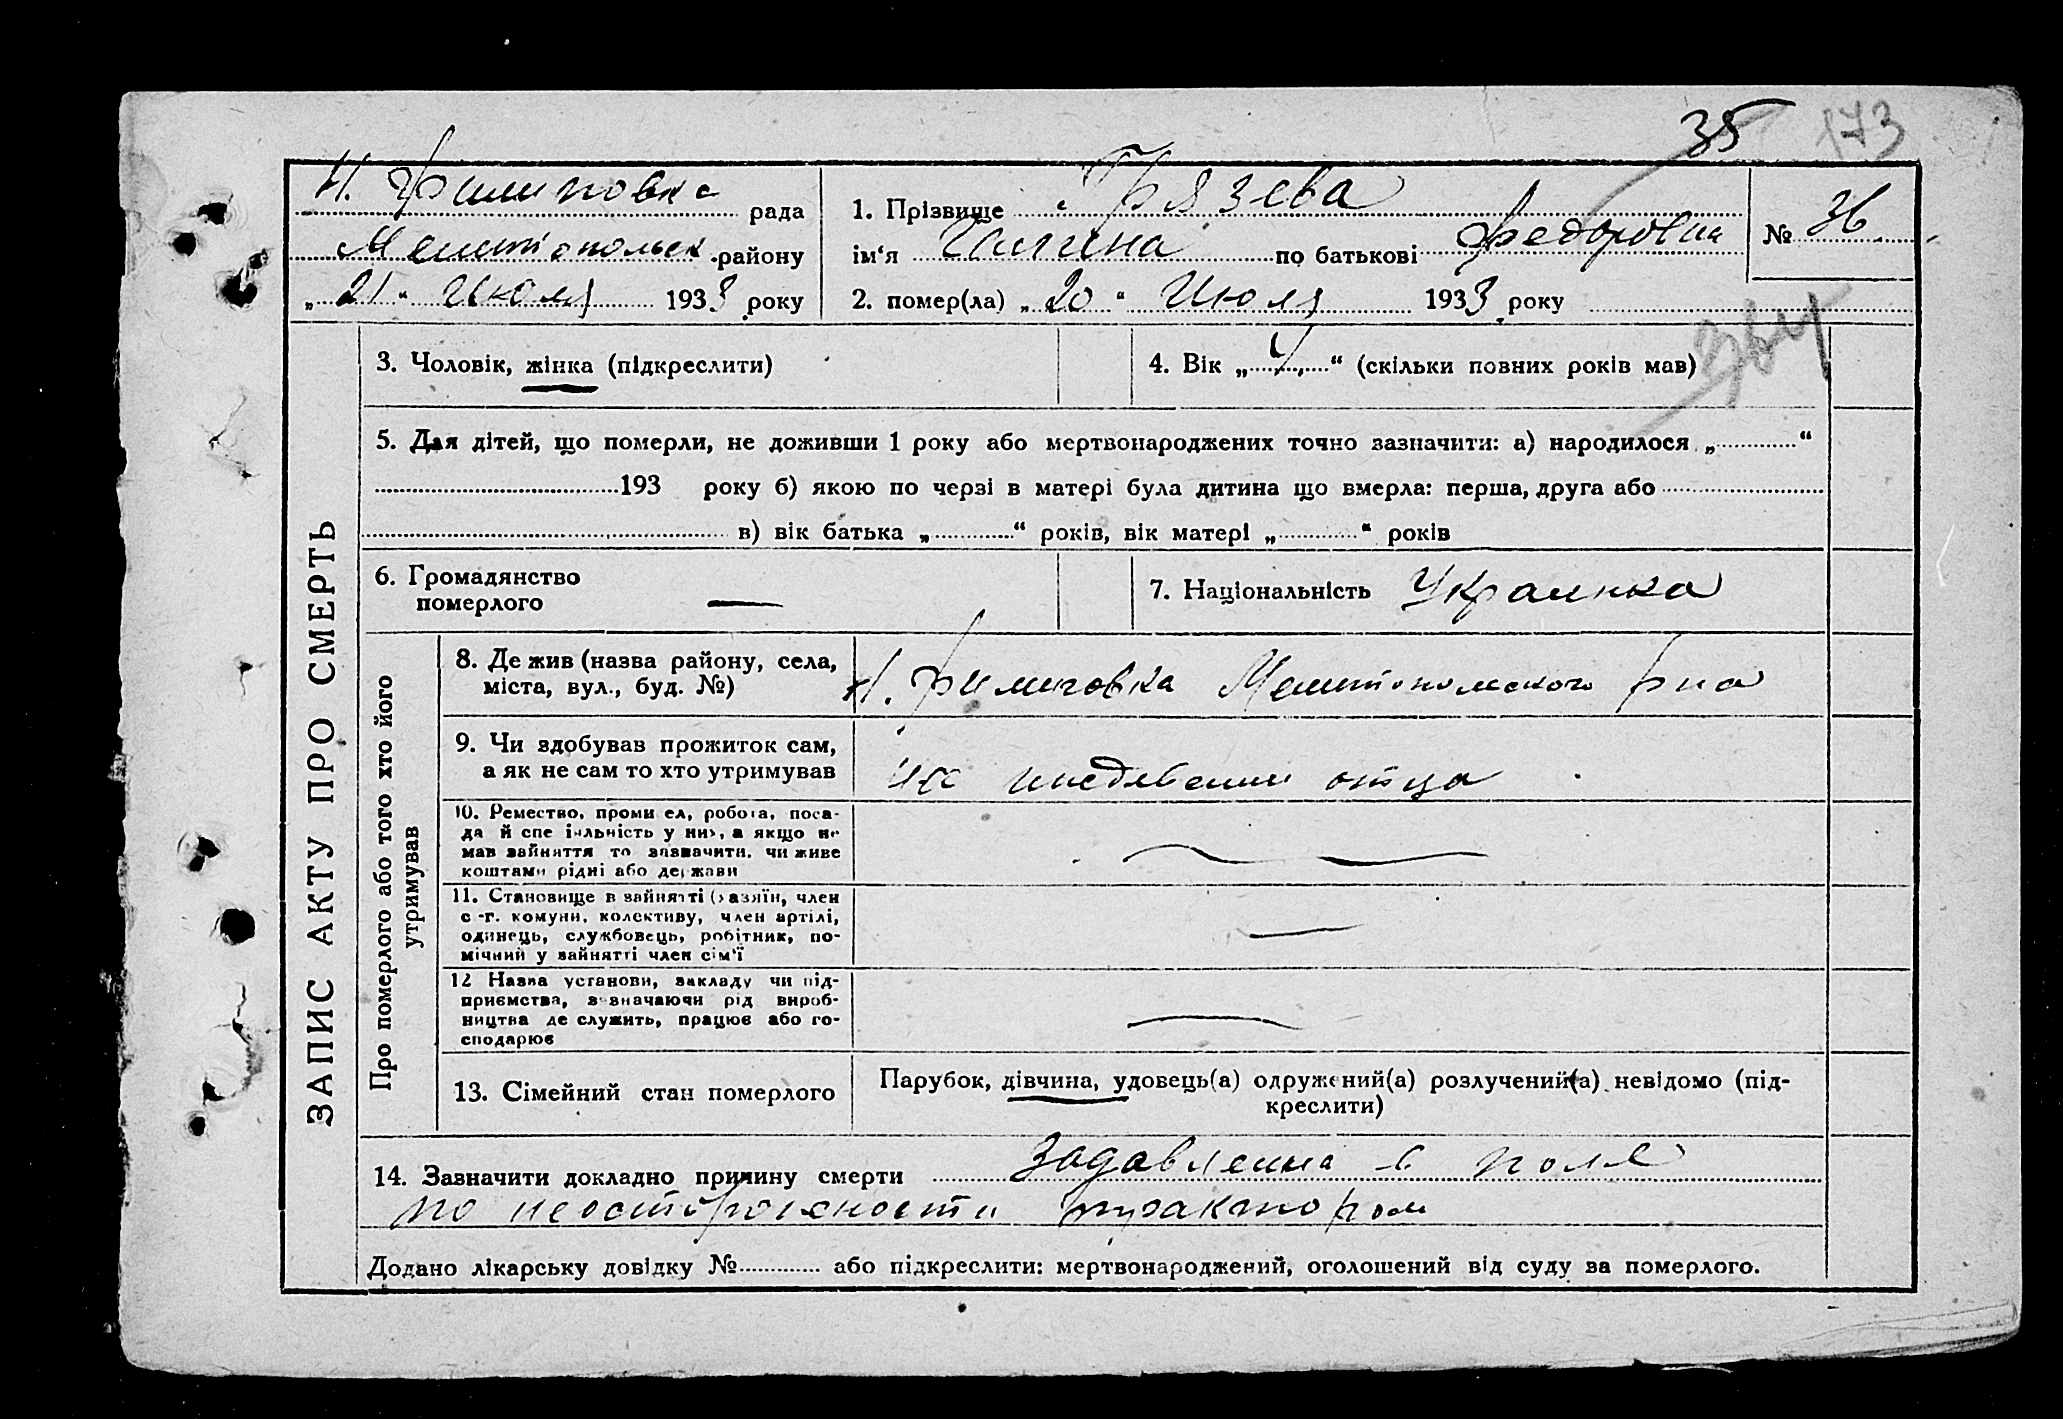 35 173
Н. Филиповка рада
Мелитопольск. району
„21“ Июля 1933 року
1. Прізвище Грязева
ім‘я Галина по батькові Федоровна
№ 36
2. помер(ла) „20“ Июля 1933 року
3. Чоловік, жінка (підкреслити)
4. Вік „4“ (скільки повних років мав)
5. Для дітей, що померли, не доживши 1 року або мертвонароджених точно зазначити: а) народилося „ “
193 року б) якою по черзі в матері була дитина що вмерла: перша, друга або
в) вік батька „ “ років, вік матері „ “ років
6. Громадянство
померлого —
7. Національність Украинка
ЗАПИС АКТУ ПРО СМЕРТЬ
Про померлого або того хто його
утримував
8. Де жив (назва району, села,
міста, вул., буд. №)
Н. Филиповка Мелитопольского р-на
9. Чи здобував прожиток сам,
а як не сам то хто утримував
На иждевении отца
10. Ремество, промисел, робота, поса-
да й спеціяльність у них, а якщо не
мав зайняття то зазначити, чи живе
коштами рідні або держави
11. Становище в зайнятті (хазяїн, член
с.-г. комуни, колективу, член артілі,
одинець, службовець, робітник, по-
мічний у зайнятті член сім'ї
12 Назва установи, закладу чи під-
приємства, зазначаючи рід вироб-
ництва де служить, працює або го-
сподарює
13. Сімейний стан померлого
Парубок, дівчина, удовець(а) одружений(а) розлучений(а) невідомо (під-
креслити)
14. Зазначити докладно причину смерти Задавленна в поле
по неосторожности трактором
Додано лікарську довідку № або підкреслити: мертвонароджений, оголошений від суду за померлого.